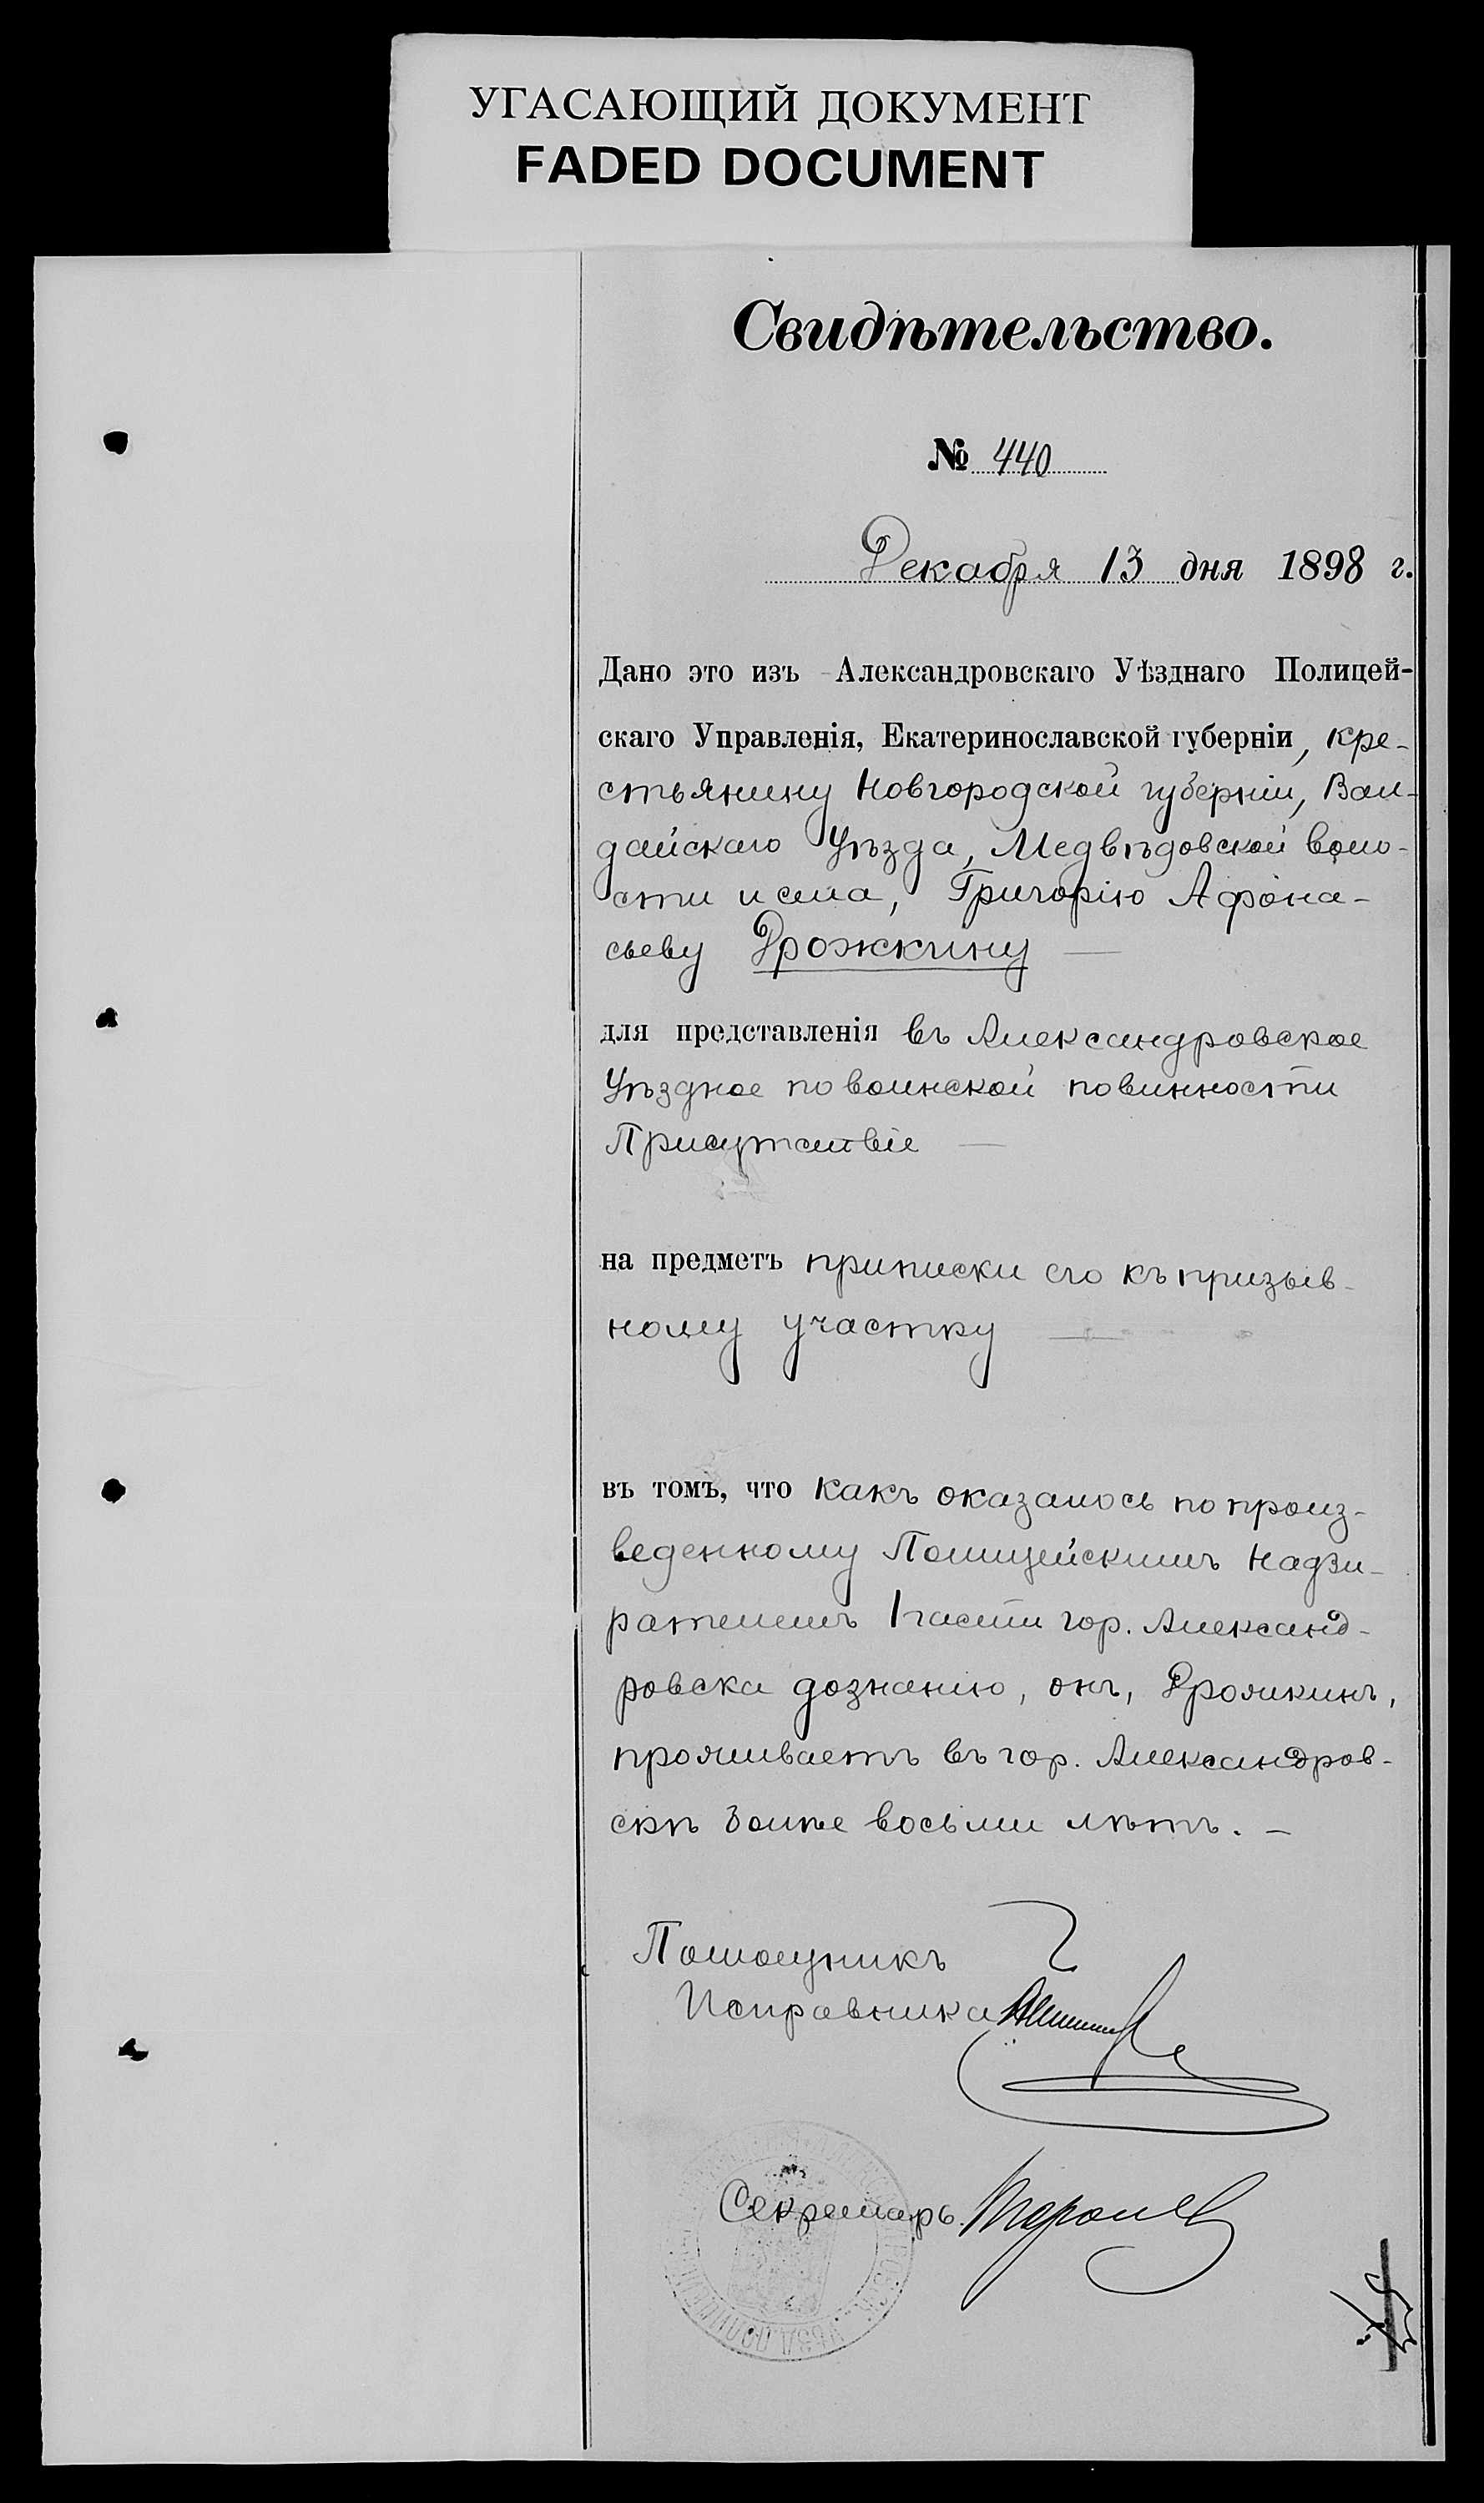 УГАСАЮЩИЙ ДОКУМЕНТ
FADED DOCUMENT
Свидѣтельство.
№ 440
Декабря 13 дня 1898 г.
Дано это изъ Александровскаго Уѣзднаго Полицей-
скаго Управленія, Екатеринославской губерніи, кре-
стьянину Новгородской губерніи, Вал-
дайскаго Уѣзда, Медвѣдовской воло-
сти и села, Григорію Афона-
сьеву Дрожжину
для представленія въ Александровское
Уѣздное по воинской повинности
Присутствіе
на предметъ приписки его къ призыв-
ному участку
въ томъ, что какъ оказалось по произ-
веденному Полицейскимъ Надзи-
рателемъ 1 части гор. Александ-
ровска дознанію, онъ, Дрожжинъ,
проживаетъ въ гор. Александров-
скѣ болѣе восьми лѣтъ. —
Помощникъ
Исправника
Секретарь